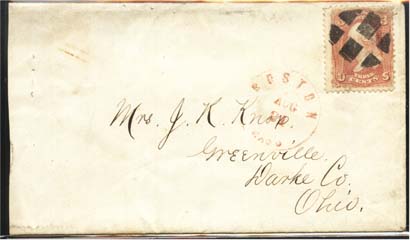 3
U S
THREE
CENTS
BOSTON
AUG
MASS
Mrs. J. K. Knop.
Greenville.
Darke Co.
Ohio.